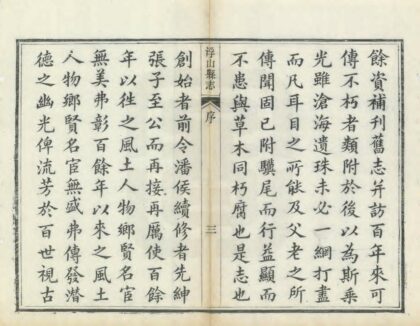 餘資補刊舊志并訪百年來可
傳不朽者類附於後以為斯乘
光雖滄海遺珠未必一網打盡
而凡耳目之所能及父老之所
傳聞固已附驥尾而行益顯而
不患與草木同朽腐也是志也
浮山縣志
序
三
創始者前令潘侯續修者先紳
張子至公而再接再厲使百餘
年以往之風土人物鄉賢名宦
無美弗彰百餘年以來之風土
人物鄉賢名宦無盛弗傳發潛
德之幽光俾流芳於百世視古